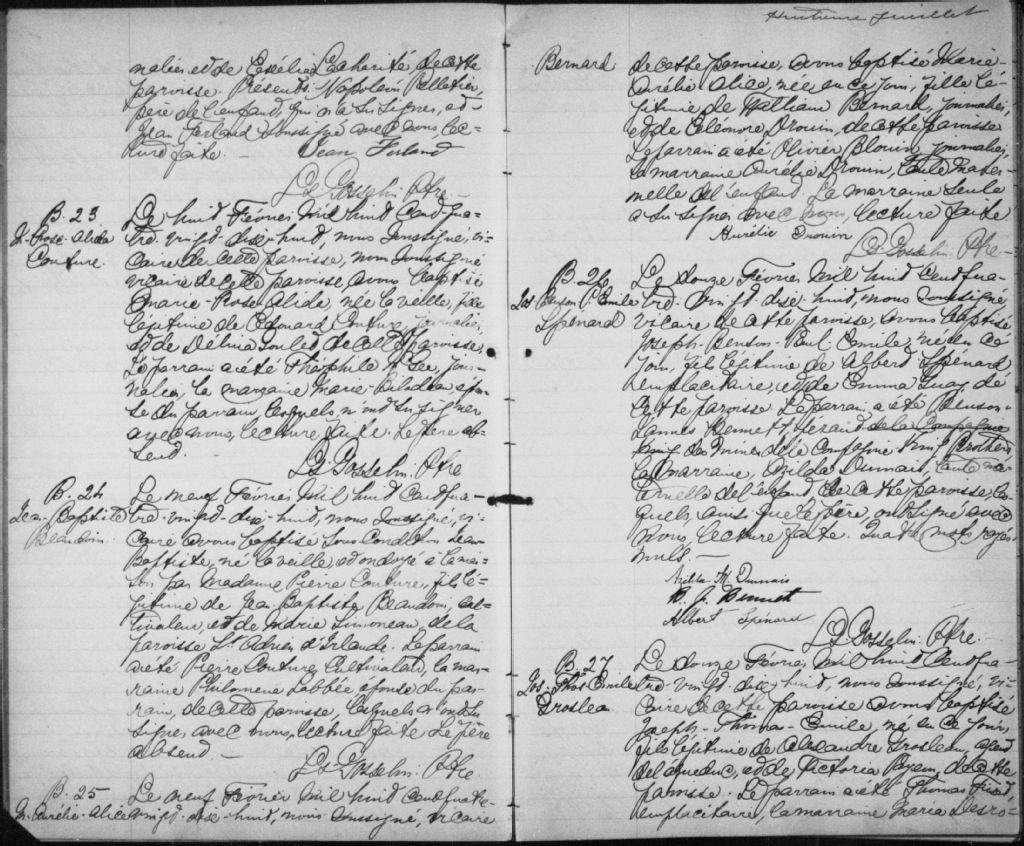 nalier et de Exélia Lacharité de cette
paroisse. Présents Napoléon Pelletier,
père de l'enfant, qui n'a su signer, et
Jean Ferland soussigné avec nous lec-
ture faite. Jean Ferland
Ls Gosselin. Ptre
B. 23
M. Rose-Alida
Couture.
Le huit Février mil huit cent qua-
tre-vingt-dix-huit, nous soussigné, vi-
caire de cette paroisse, nous soussigné
vicaire de cette paroisse avons baptisé
Marie-Rose-Alida, née la veille, fille
légitime de Edouard Couture, journalier,
et de Délina de cette paroisse.
Le parrain a été Théophile jour-
nalier, la marraine Marie épou-
se du parrain, lesquels n'ont su signer
avec nous, lecture faite. Le père ab-
sent.
Ls Gosselin. Ptre
B. 24
Jea. Baptiste
Beaudoin.
Le neuf Février mil huit cent qua-
tre-vingt-dix-huit, nous soussigné, vi-
caire avons baptisé sous condition Jean
Baptiste, né la veille, et ondoyé à la mai-
son par Madame Pierre Couture, fils lé-
gitime de Jea. Baptiste Beaudoin, cul-
tivateur, et de Marie Simoneau, de la
paroisse St. Adrien d'Irlande. Le parrain
a été Pierre Couture, Cultivateur, la mar-
raine Philomène Labbée épouse du par-
rain, de cette paroisse, lesquels n'ont su
signer avec nous, lecture faite Le père
absent.
Ls Gosselin. Ptre.
B. 25
M. Aurélie-Alice
Le neuf Février mil huit cent quatre-
vingt-dix-huit, nous soussigné, vicaire
Huitième feuillet
Bernard
de cette paroisse, avons baptisé Marie-
Aurélie Alice, née en ce jour, fille lé-
gitime de William Bernard, journalier,
et de Eléonore Drouin, de cette paroisse
Le parrain a été Olivier Blouin, journalier,
la marraine Aurélie Drouin, tante mater-
nelle de l'enfant. La marraine seule
a su signer avec nous, lecture faite
Aurélie Drouin
Ls Gosselin. Ptre
B. 26
Jos. Benson P. Emile
Spénard
Le douze Février mil huit cent qua-
tre-vingt-dix-huit, nous soussigné
vicaire de cette paroisse, avons baptisé
Joseph-Benson-Paul-Emile, né en ce
jour, fils légitime de Albert Spénard
emplacitaire, et de Emma Guay, de
cette paroisse. Le parrain a été Benson
James Bennett de la Compagnie
des Mines de la Compagnie King Brothers
la marraine, Azilda Dumais, tante ma-
ternelle de l'enfant, de cette paroisse, les-
quels, ainsi que le père, ont signé avec
nous, lecture faite. Quatre mots rayés
nuls.
Azilda M. Dumais
B. J. Bennett
Albert Spénard
Ls Gosselin Ptre.
B. 27
Jos. Thos Emile
Grosleau
Le douze Février mil huit cent qua-
tre-vingt-dix-huit, nous soussigné, vi-
caire de cette paroisse avons baptisé
Joseph-Thomas-Emile, né en ce jour,
fils légitime de Alexandre Grosleau, agent
de l'aqueduc, et de Victoria de cette
paroisse. Le parrain a été Thomas
emplacitaire, la marraine Maria Desro-